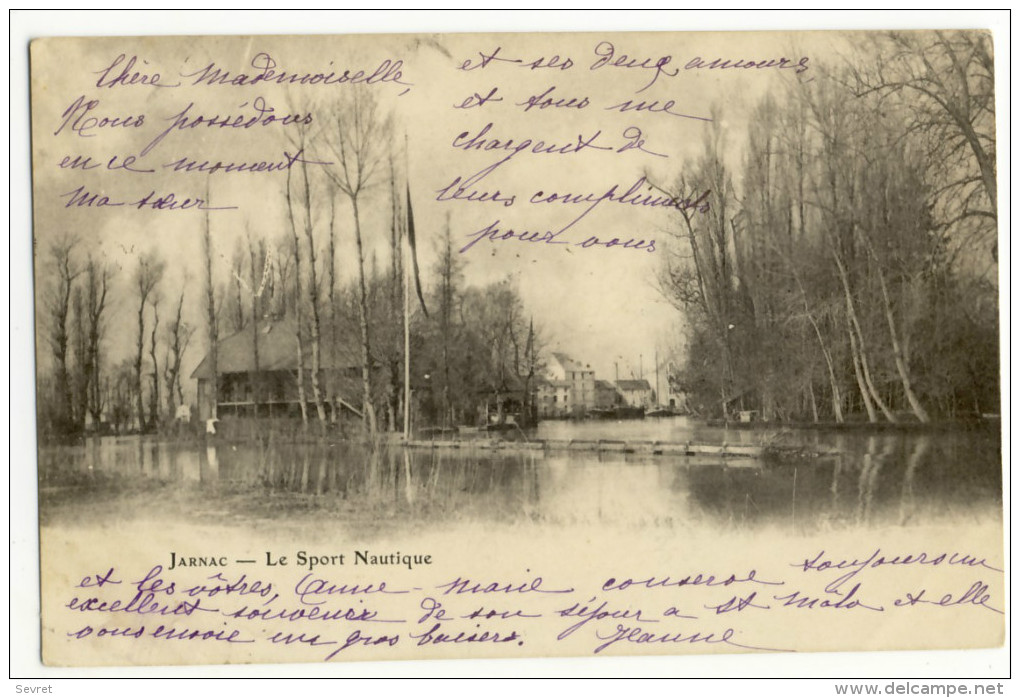 Chère Mademoiselle,
Nous possédons
en ce moment
ma sœur
et ses deux amours
et tous me
chargent de
leurs compliments
pour vous
JARNAC — Le Sport Nautique
et les vôtres, Anne-Marie conserve toujours un
excellent souvenir de son séjour a St Malo et elle
vous envoie un gros baisers. Jeanne
delcampe.net
Sevret